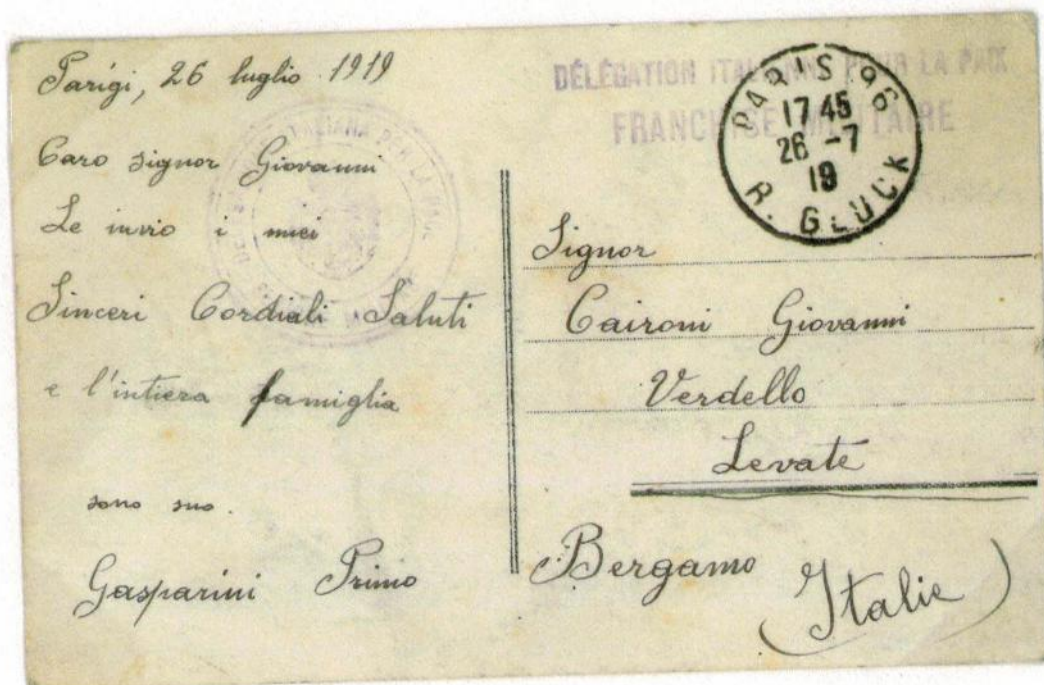 Parigi, 26 luglio 1919
Caro signor Giovanni
Le invio i miei
Sinceri Cordiali Saluti
e l'intiera famiglia
sono suo.
Gasparini Primo
DÉLÉGATION ITALIENNE POUR LA PAIX
FRANCHISE MILITAIRE
PARIS 96
17 45
26 -7
19
R. GLUCK
ITALIANA PER LA PACE
Signor
Caironi Giovanni
Verdello
Levate
Bergamo
(Italie)